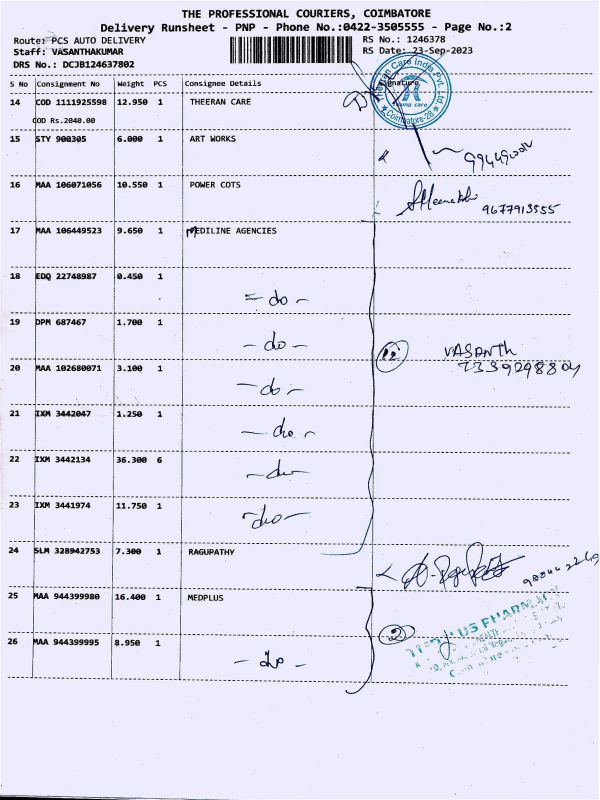 THE PROFESSIONAL COURIERS, COIMBATORE
Delivery Runsheet - PNP - Phone No.:0422-3505555 - Page No.:2
Route: PCS AUTO DELIVERY
RS No.: 1246378
Staff: VASANTHAKUMAR
RS Date: 23-Sep-2023
DRS No.: DCJB124637802
S No Consignment No Weight PCS Consignee Details Signature
Theeran Care India Pvt. Ltd.
Coimbatore-28
14 COD 1111925598 12.950 1 THEERAN CARE
COD Rs.2040.00
15 STY 900305 6.000 1 ART WORKS
16 MAA 106071056 10.550 1 POWER COTS
9677913555
17 MAA 106449523 9.650 1 MEDILINE AGENCIES
18 EDQ 22748987 0.450 1 - do -
19 DPM 687467 1.700 1 - do -
VASANTH
20 MAA 102680071 3.100 1 - do -
21 IXM 3442047 1.250 1 - do -
22 IXM 3442134 36.300 6 - do -
23 IXM 3441974 11.750 1 - do -
24 SLM 328942753 7.300 1 RAGUPATHY
25 MAA 944399980 16.400 1 MEDPLUS
2
26 MAA 944399995 8.950 1 - do -